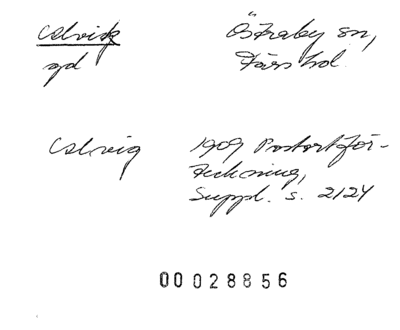 Calvik Östraby sn,
gd Färs hd.
Calvig 1909 Postortför-
teckning,
Suppl. s. 2124
00028856